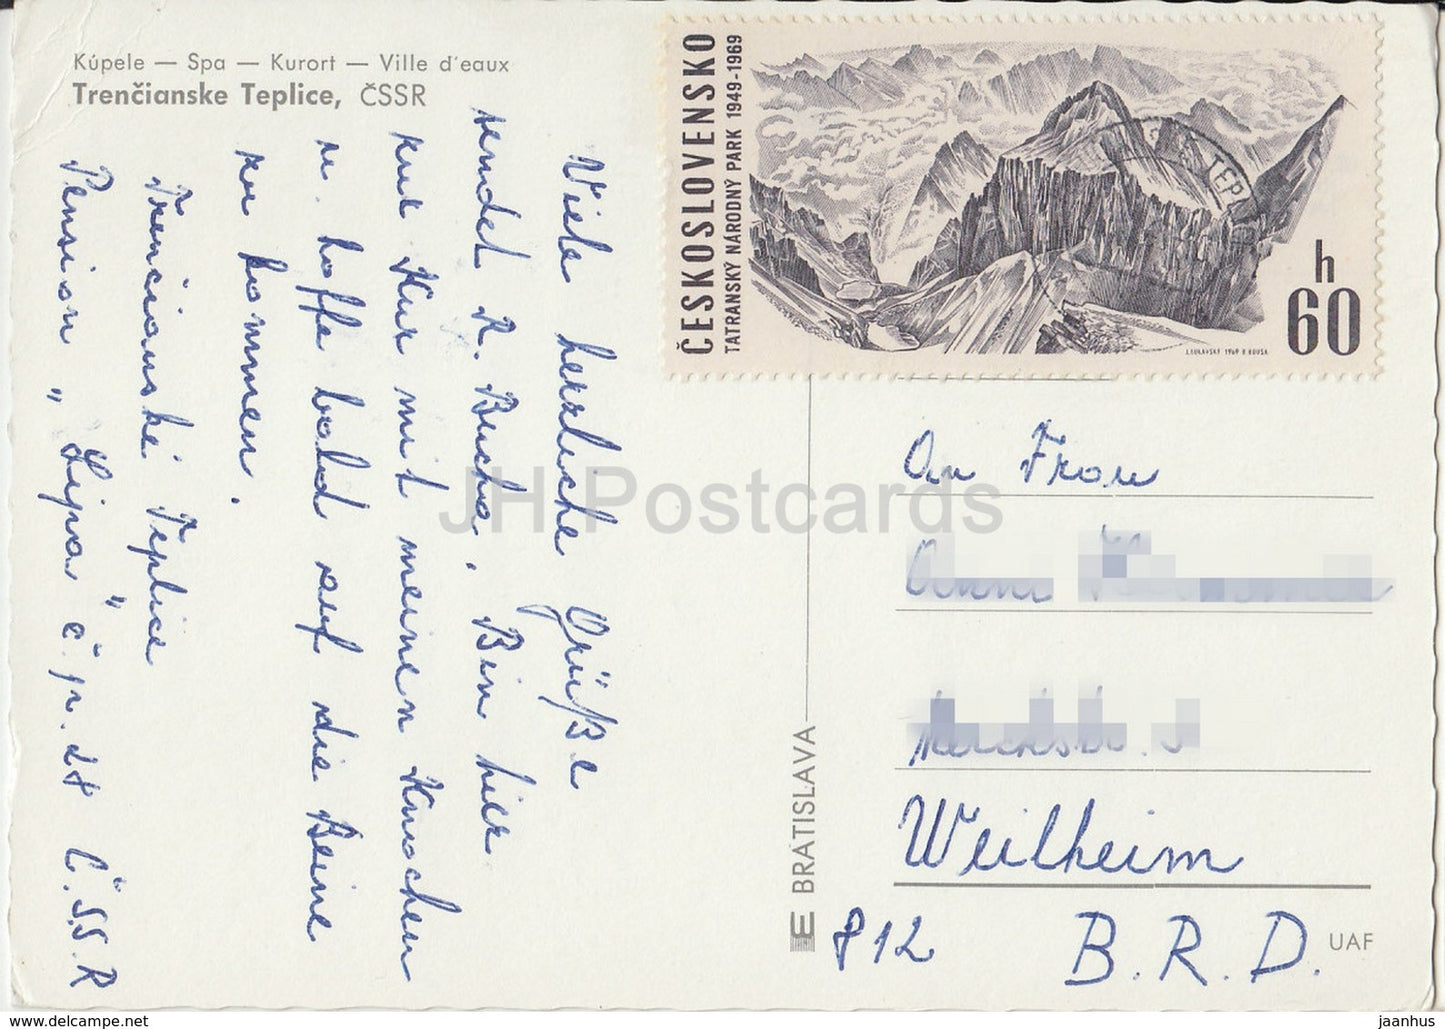 Kúpele — Spa — Kurort — Ville d'eaux
Trenčianske Teplice, ČSSR
Viele herzliche Grüße
sendet R. Bucha. Bin hier
zur Kur mit meinen Knochen
u. hoffe bald auf die Beine
zu kommen.
Trenčianské Teplice
Pension „Lipa" č. p. 28 Č.S.S.R
ČESKOSLOVENSKO
TATRANSKÝ NÁRODNÝ PARK 1949-1969
h
60
TEPL
An Frau
Weilheim
812 B.R.D.
BRATISLAVA
UAF
JH Postcards
www.delcampe.net
jaanhus